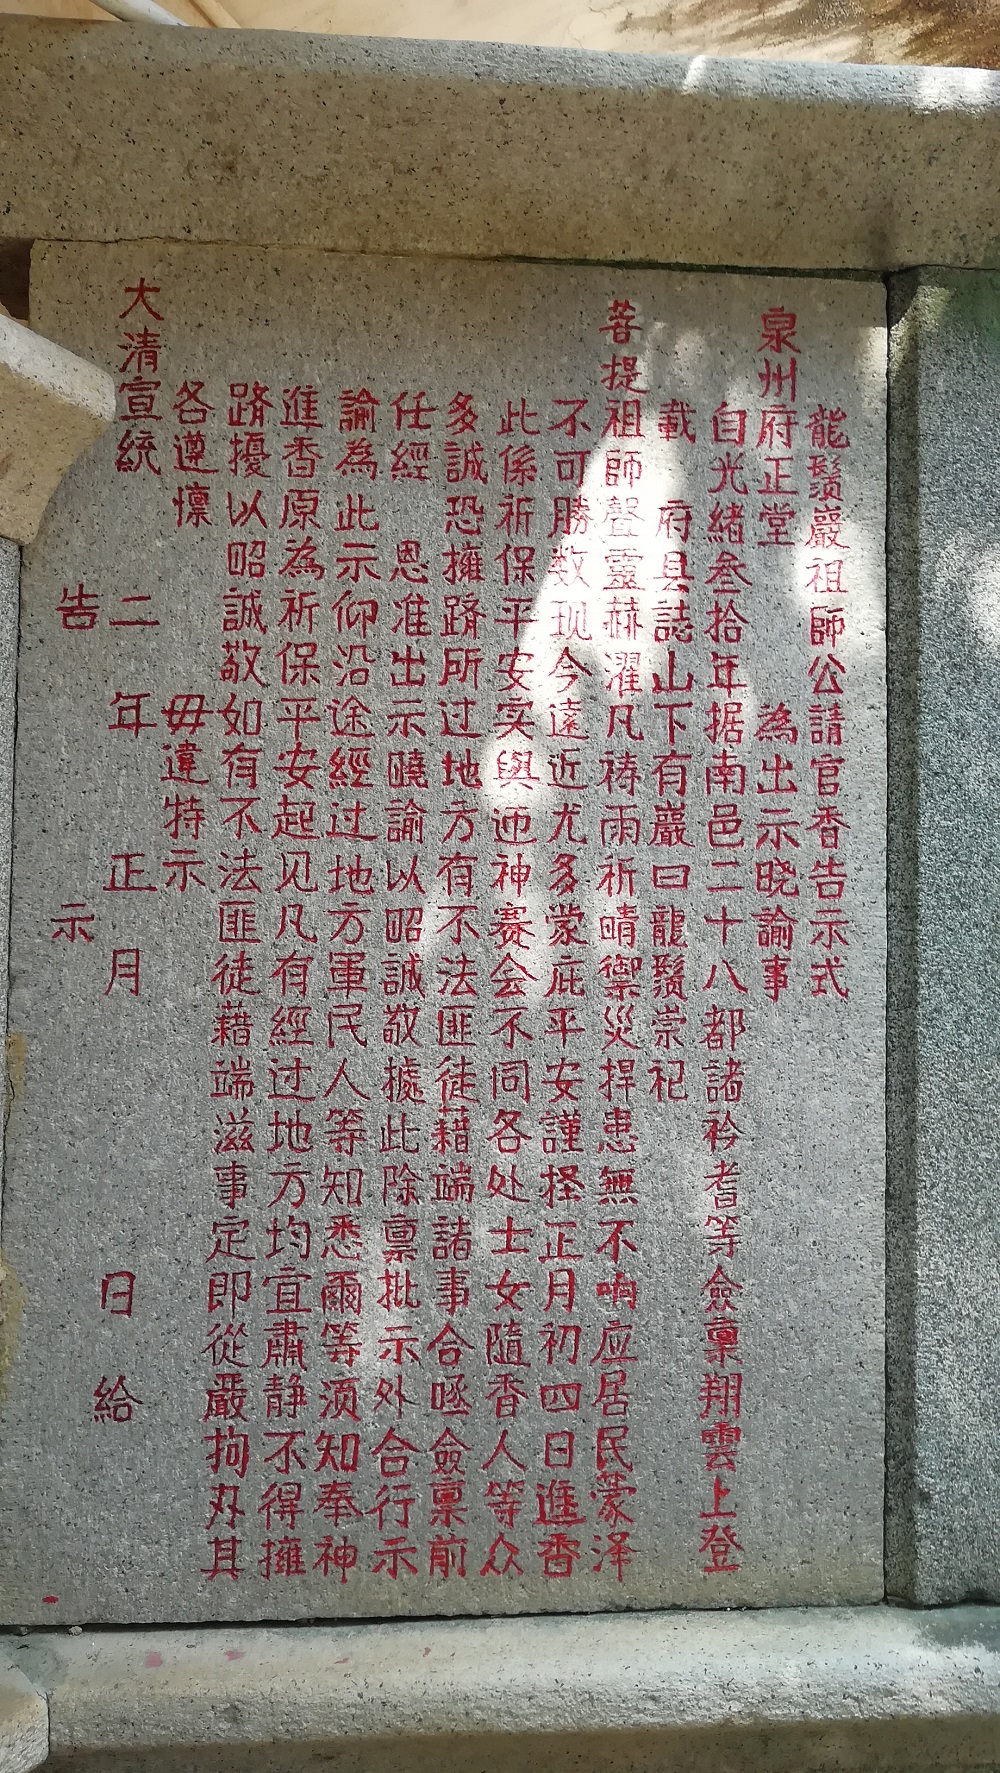 龍鬚巖祖師公請官香告示式
泉州府正堂 為出示晓諭事
自光緒叁拾年据南邑二十八都諸衿耆等僉稟翔雲上登
載 府县誌山下有巖曰龍鬚崇祀
菩提祖師聲靈赫濯凡祷雨祈晴禦災捍患無不响应居民蒙泽
不可勝数现今遠近尤多蒙庇平安謹择正月初四日進香
此係祈保平安实與迊神賽会不同各处士女隨香人等众
多誠恐擁躋所过地方有不法匪徒藉端諸事合亟僉稟前
任經 恩准出示曉諭以昭誠敬據此除稟批示外合行示
諭為此示仰沿途經过地方軍民人等知悉爾等须知奉神
進香原為祈保平安起见凡有經过地方均宜肅静不得擁
躋擾以昭誠敬如有不法匪徒藉端滋事定即從嚴拘办其
各遵懔 毋違特示
大清宣統 二年 正月 日給
告 示